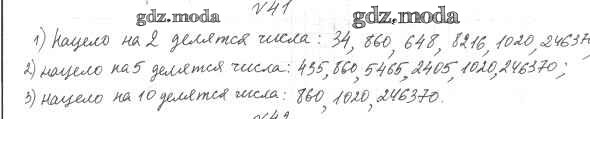 №41
gdz.moda gdz.moda
1) Нацело на 2 делятся числа: 34, 860, 648, 8216, 1020, 246370
2) нацело на 5 делятся числа: 435, 860, 5465, 2405, 1020, 246370;
3) нацело на 10 делятся числа: 860, 1020, 246370.